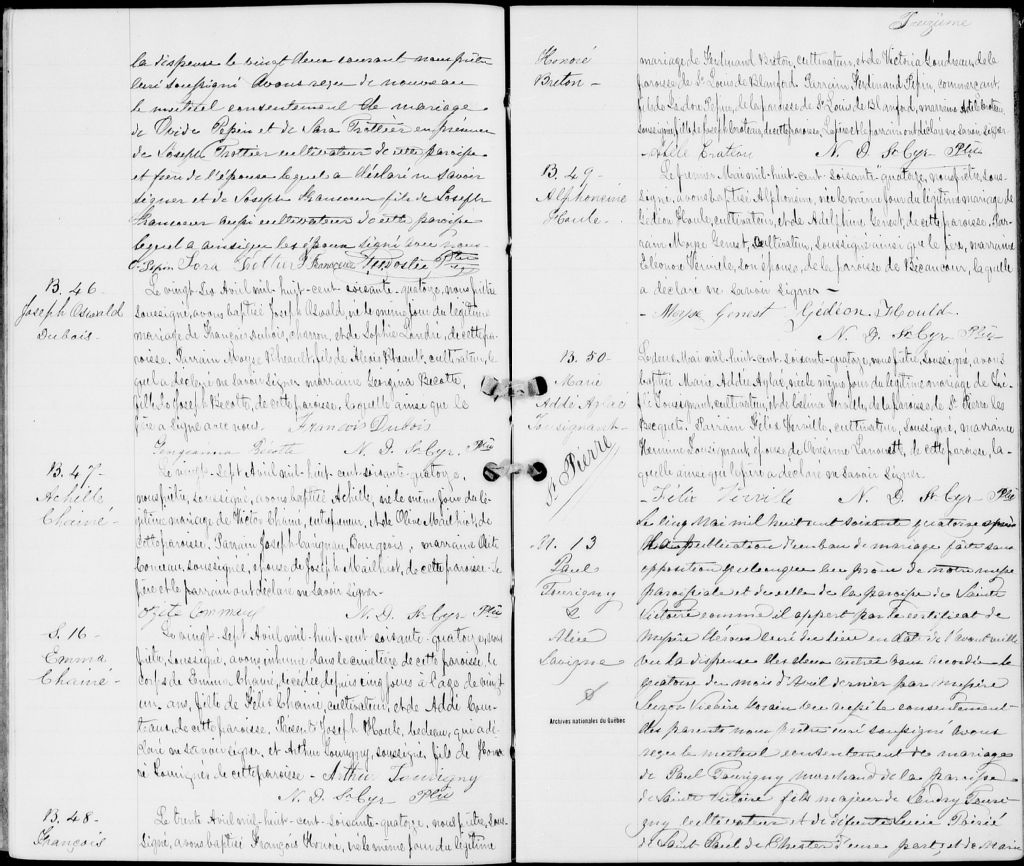 la dispense le vingt deux courant nous prêtre
curé soussigné avons reçu de nouveau
le mutuel consentement de mariage
de Ovide Pepin et de Sara Trottier en présence
de Joseph Trottier cultivateur de cette paroisse
et frère de l'épouse lequel a déclaré ne savoir
signer et de Joseph Francoeur fils de Joseph
Francoeur aussi cultivateur de cette paroisse
lequel a ainsi que les époux signé avec nous
O. Pepin Sara Trottier J Francoeur Ptre
B. 46
Joseph Oswald
Dubois
Le vingt Six Avril mil-huit-cent soixante-quatorze, nous prêtre
soussigné, avons baptisé Joseph Oswald, né le même jour du légitime
mariage de François Dubois, charron, et de Sophie Landrie, de cette pa-
roisse. Parrain Moyse Rheault, fils de Alexis Rheault, cultivateur, le
quel a déclaré ne savoir signer marraine Georgina Becotte,
fille de Joseph Becotte, de cette paroisse, laquelle ainsi que le
père a signé avec nous. Francois Dubois
Becotte N. D. St Cyr. Ptre
B. 47
Achille
Chainé
Le vingt-sept Avril mil-huit-cent-soixante-quatorze,
nous prêtre, soussigné, avons baptisé Achille, né le même jour du lé-
gitime mariage de Victor Chainé, entrepreneur, et de Olive Mailhiot, de
cette paroisse, Parrain Joseph Gavignau, Bourgeois, marraine Exite
Comeau, soussignée, épouse de Joseph Mailhiot, de cette paroisse: le
père et le parrain ont déclaré ne savoir signer
N. D. St Cyr Ptre
S. 16
Emma
Chainé
Le vingt-sept Avril mil-huit-cent soixante-quatorze, nous
prêtre, soussigné, avons inhumé dans le cimetière de cette paroisse, le
corps de Emma Chainé, décédée depuis cinq jours à l'age de vingt
un ans, fille de Félix Chainé, cultivateur, et de Addé Cour-
de cette paroisse, Présents Joseph Houle, bedeau, qui a dé-
claré ne savoir signer, et Arthur Tourigny, soussigné, fils de Hono-
ré Tourigny de cette paroisse - Arthur Tourigny
N. D. St Cyr Ptre
B. 48
François
Le trente Avril mil-huit-cent-soixante-quatorze, nous prêtre, sous-
signé, avons baptisé François Honoré, né le même jour du légitime
Treizième
Honoré
Breton
mariage de Ferdinand Breton, cultivateur, et de Victoria Goudreau, de la
paroisse de St Louis de Blanford, Parrain, Ferdinand Pepin, commerçant,
fils de Pepin, de la paroisse de St Louis de Blanford, marraine Adèle Croteau,
soussignée fille de Joseph Croteau, de cette paroisse. Le père et le parrain ont déclaré ne savoir signer
Adèle Crotteau N. D. St Cyr Ptre
B. 49
Alphonsine
Houle
Le premier Mai mil-huit-cent-soixante-quatorze, nous prêtre, sous-
signé, avons baptisé Alphonsine, née le même jour du légitime mariage de
Gédéon Houle, cultivateur, et de Adelphine Genest, de cette paroisse. Par-
rain Moyse Genest, cultivateur, soussigné ainsi que le père, marraine
Eléonore Verville, son épouse, de la paroisse de Bécancour, laquelle
a déclaré ne savoir signer
Moyse Genest Gédéon Hould
N. D. St Cyr Ptre
B. 50
Marie
Addée Aglaé
Tousignant
St Pierre
Le deux Mai mil-huit-cent soixante-quatorze, nous prêtre, soussigné, avons
baptisé Marie Addée Aglaé, née le même jour du légitime mariage de
Tousignant, cultivateur, et de Célina Verville, de la paroisse de St Pierre les
Becquets. Parrain Félix Verville, cultivateur, soussigné, marraine
Hermine Tousignant, épouse de Onésime Lanouette, de cette paroisse, la-
quelle ainsi que le père a déclaré ne savoir signer
Félix Verville N. D. St Cyr Ptre
M. 13
Paul
Tourigny
&
Alice
Lavigne
Archives nationales du Québec
Le cinq Mai mil huit cent soixante quatorze après
la publication d'un ban de mariage faite sans
opposition quelconque au prône de notre messe
paroissiale et de celle de la paroisse de Sainte
Victoire comme il appert par le certificat de
messire Héroux curé du lieu en date de l'avant veille
vu la dispense des deux autres bans accordée le
quatorze du mois d'Avril dernier par messire
Suzor Vicaire Forain vu aussi le consentement
des parents nous prêtre curé soussigné avons
reçu le mutuel consentement de mariage
de Paul Tourigny marchand de la paroisse
de Sainte Victoire fils majeur de Landry Touri-
gny cultivateur et de défunte Lucie Poirié
de Saint Paul de Chester d'une part, et de Marie